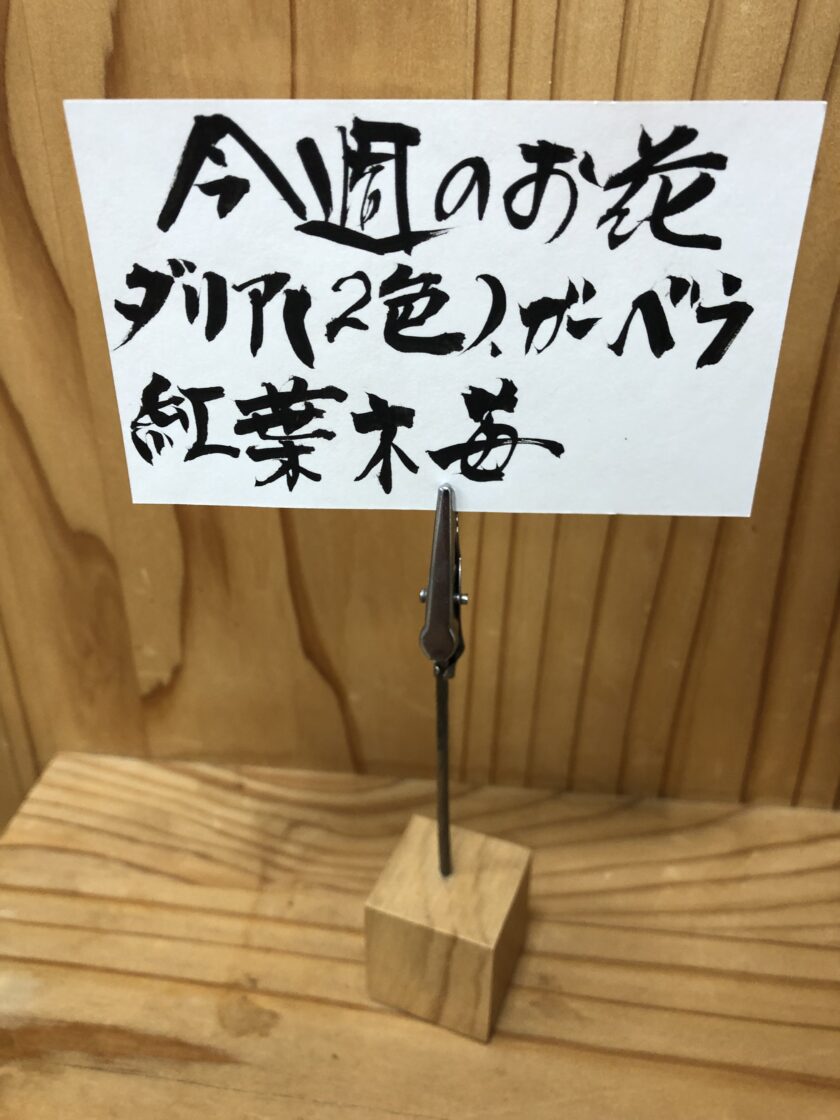 今週のお花
ダリア(2色)、ガーベラ
紅葉木苺